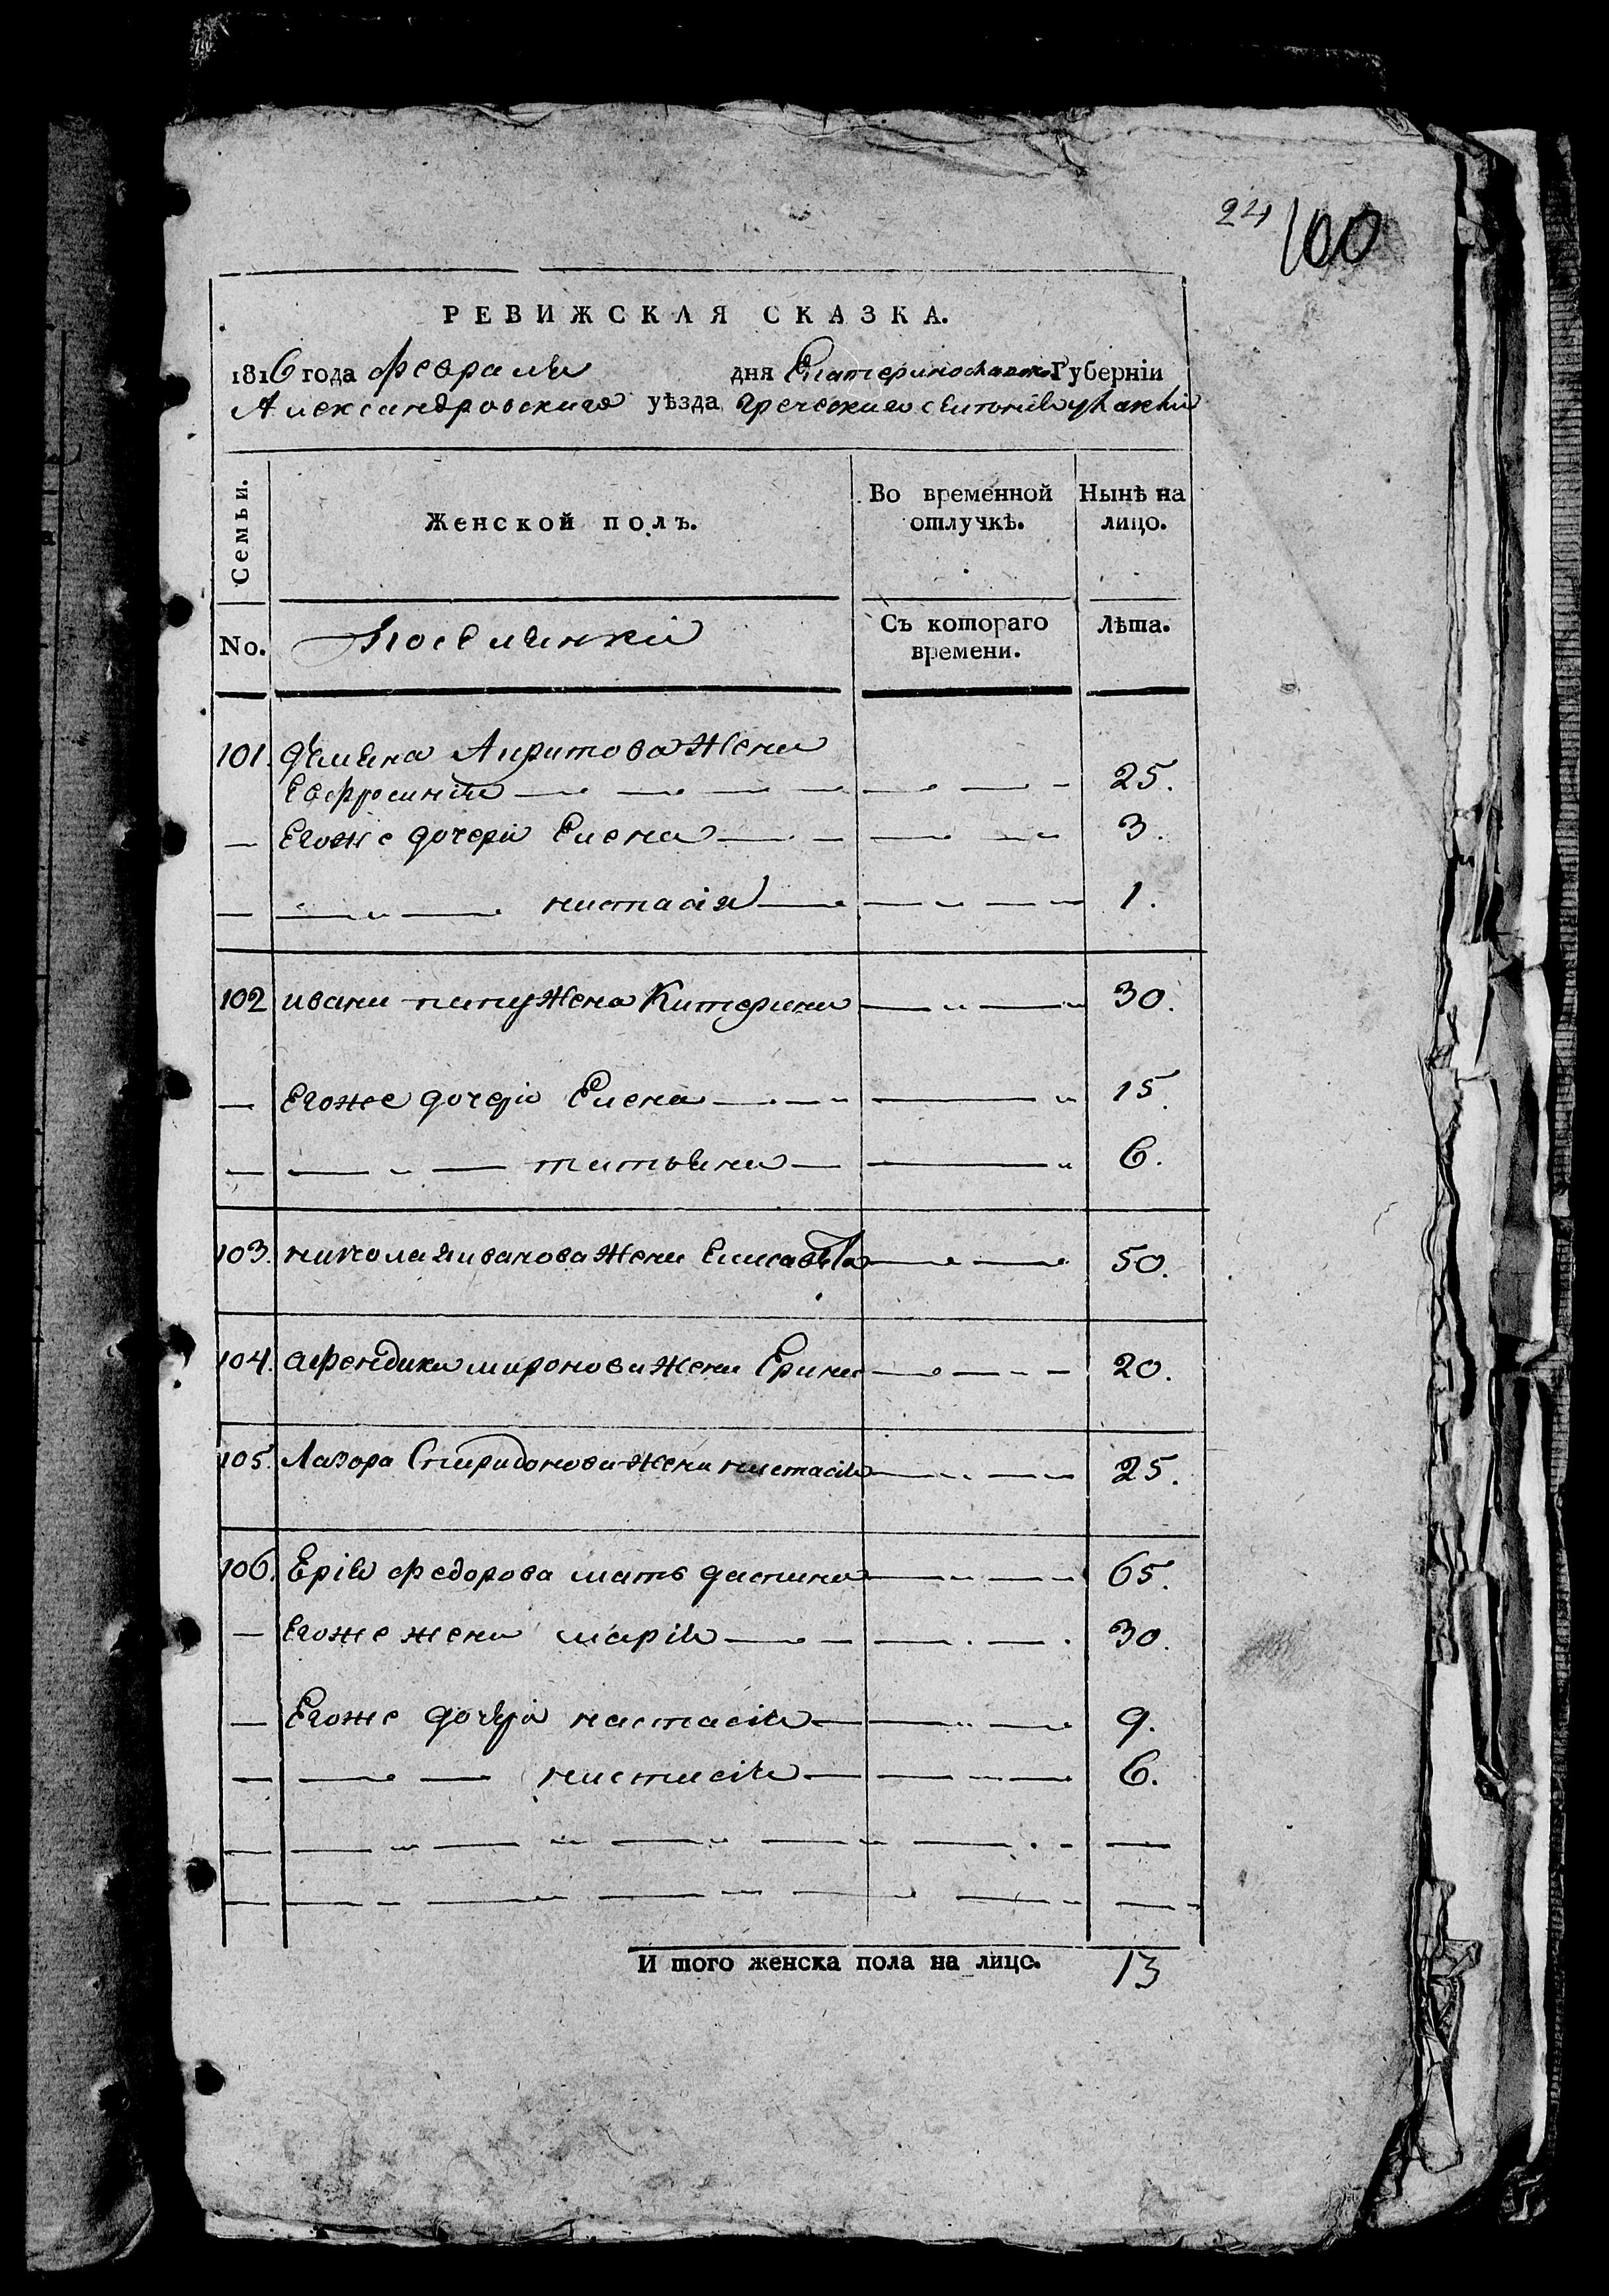 24 100
РЕВИЖСКАЯ СКАЗКА.
1816 года февраля дня Екатеринославской Губерніи
Александровскаго уѣзда греческаго селенія
Семьи.
Женской полъ.
Во временной отлучкѣ.
Нынѣ на лицо.
No.
Поселянки
Съ котораго времени.
Лѣта.
101. жена
Евфросинія — — — — — 25.
— Егоже дочери Елена — — — — 3.
— — „ — настасія — — „ — 1.
102 ивана папу жена Катерина — „ — 30.
— Егоже дочери Елена — — — „ 15.
— — „ — татьяна — — „ 6.
103. николая иванова жена Елисавѣта — — 50.
104. афендика миронова жена Ерина — — 20.
105. Лазора Спиридонова жена настасія — „ — 25.
106. федорова мать деспина — „ — 65.
— Егоже жена марія — — — . — . 30.
— Егоже дочери настасія — — „ — 9.
— — — настасія — — „ — 6.
И того женска пола на лицо. 13